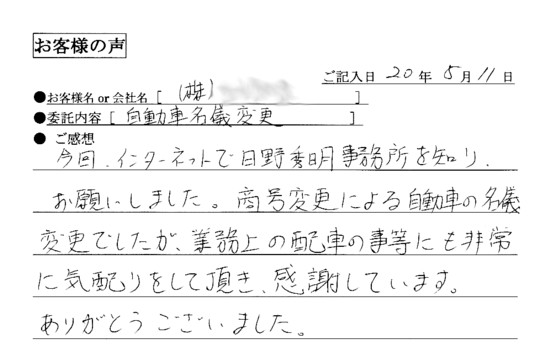 お客様の声
ご記入日 20年 5月 11日
●お客様名 or 会社名 [ (株) ]
●委託内容 [ 自動車名儀変更 ]
● ご感想
今回、インターネットで日野秀明事務所を知り、
お願いしました。商号変更による自動車の名儀
変更でしたが、業務上の配車の事等にも非常
に気配りをして頂き、感謝しています。
ありがとうございました。